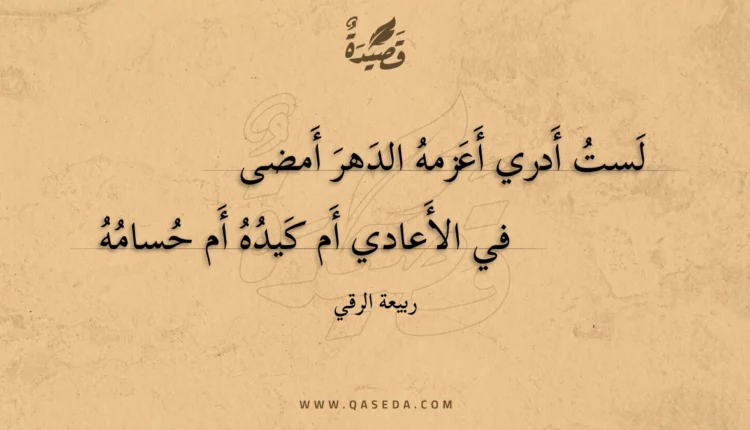 قَصِيدَةٌ
لَستُ أَدري أَعَزمهُ الدَهرَ أَمضى
في الأَعادي أَم كَيدُهُ أَم حُسامُهُ
ربيعة الرقي
WWW.QASEDA.COM